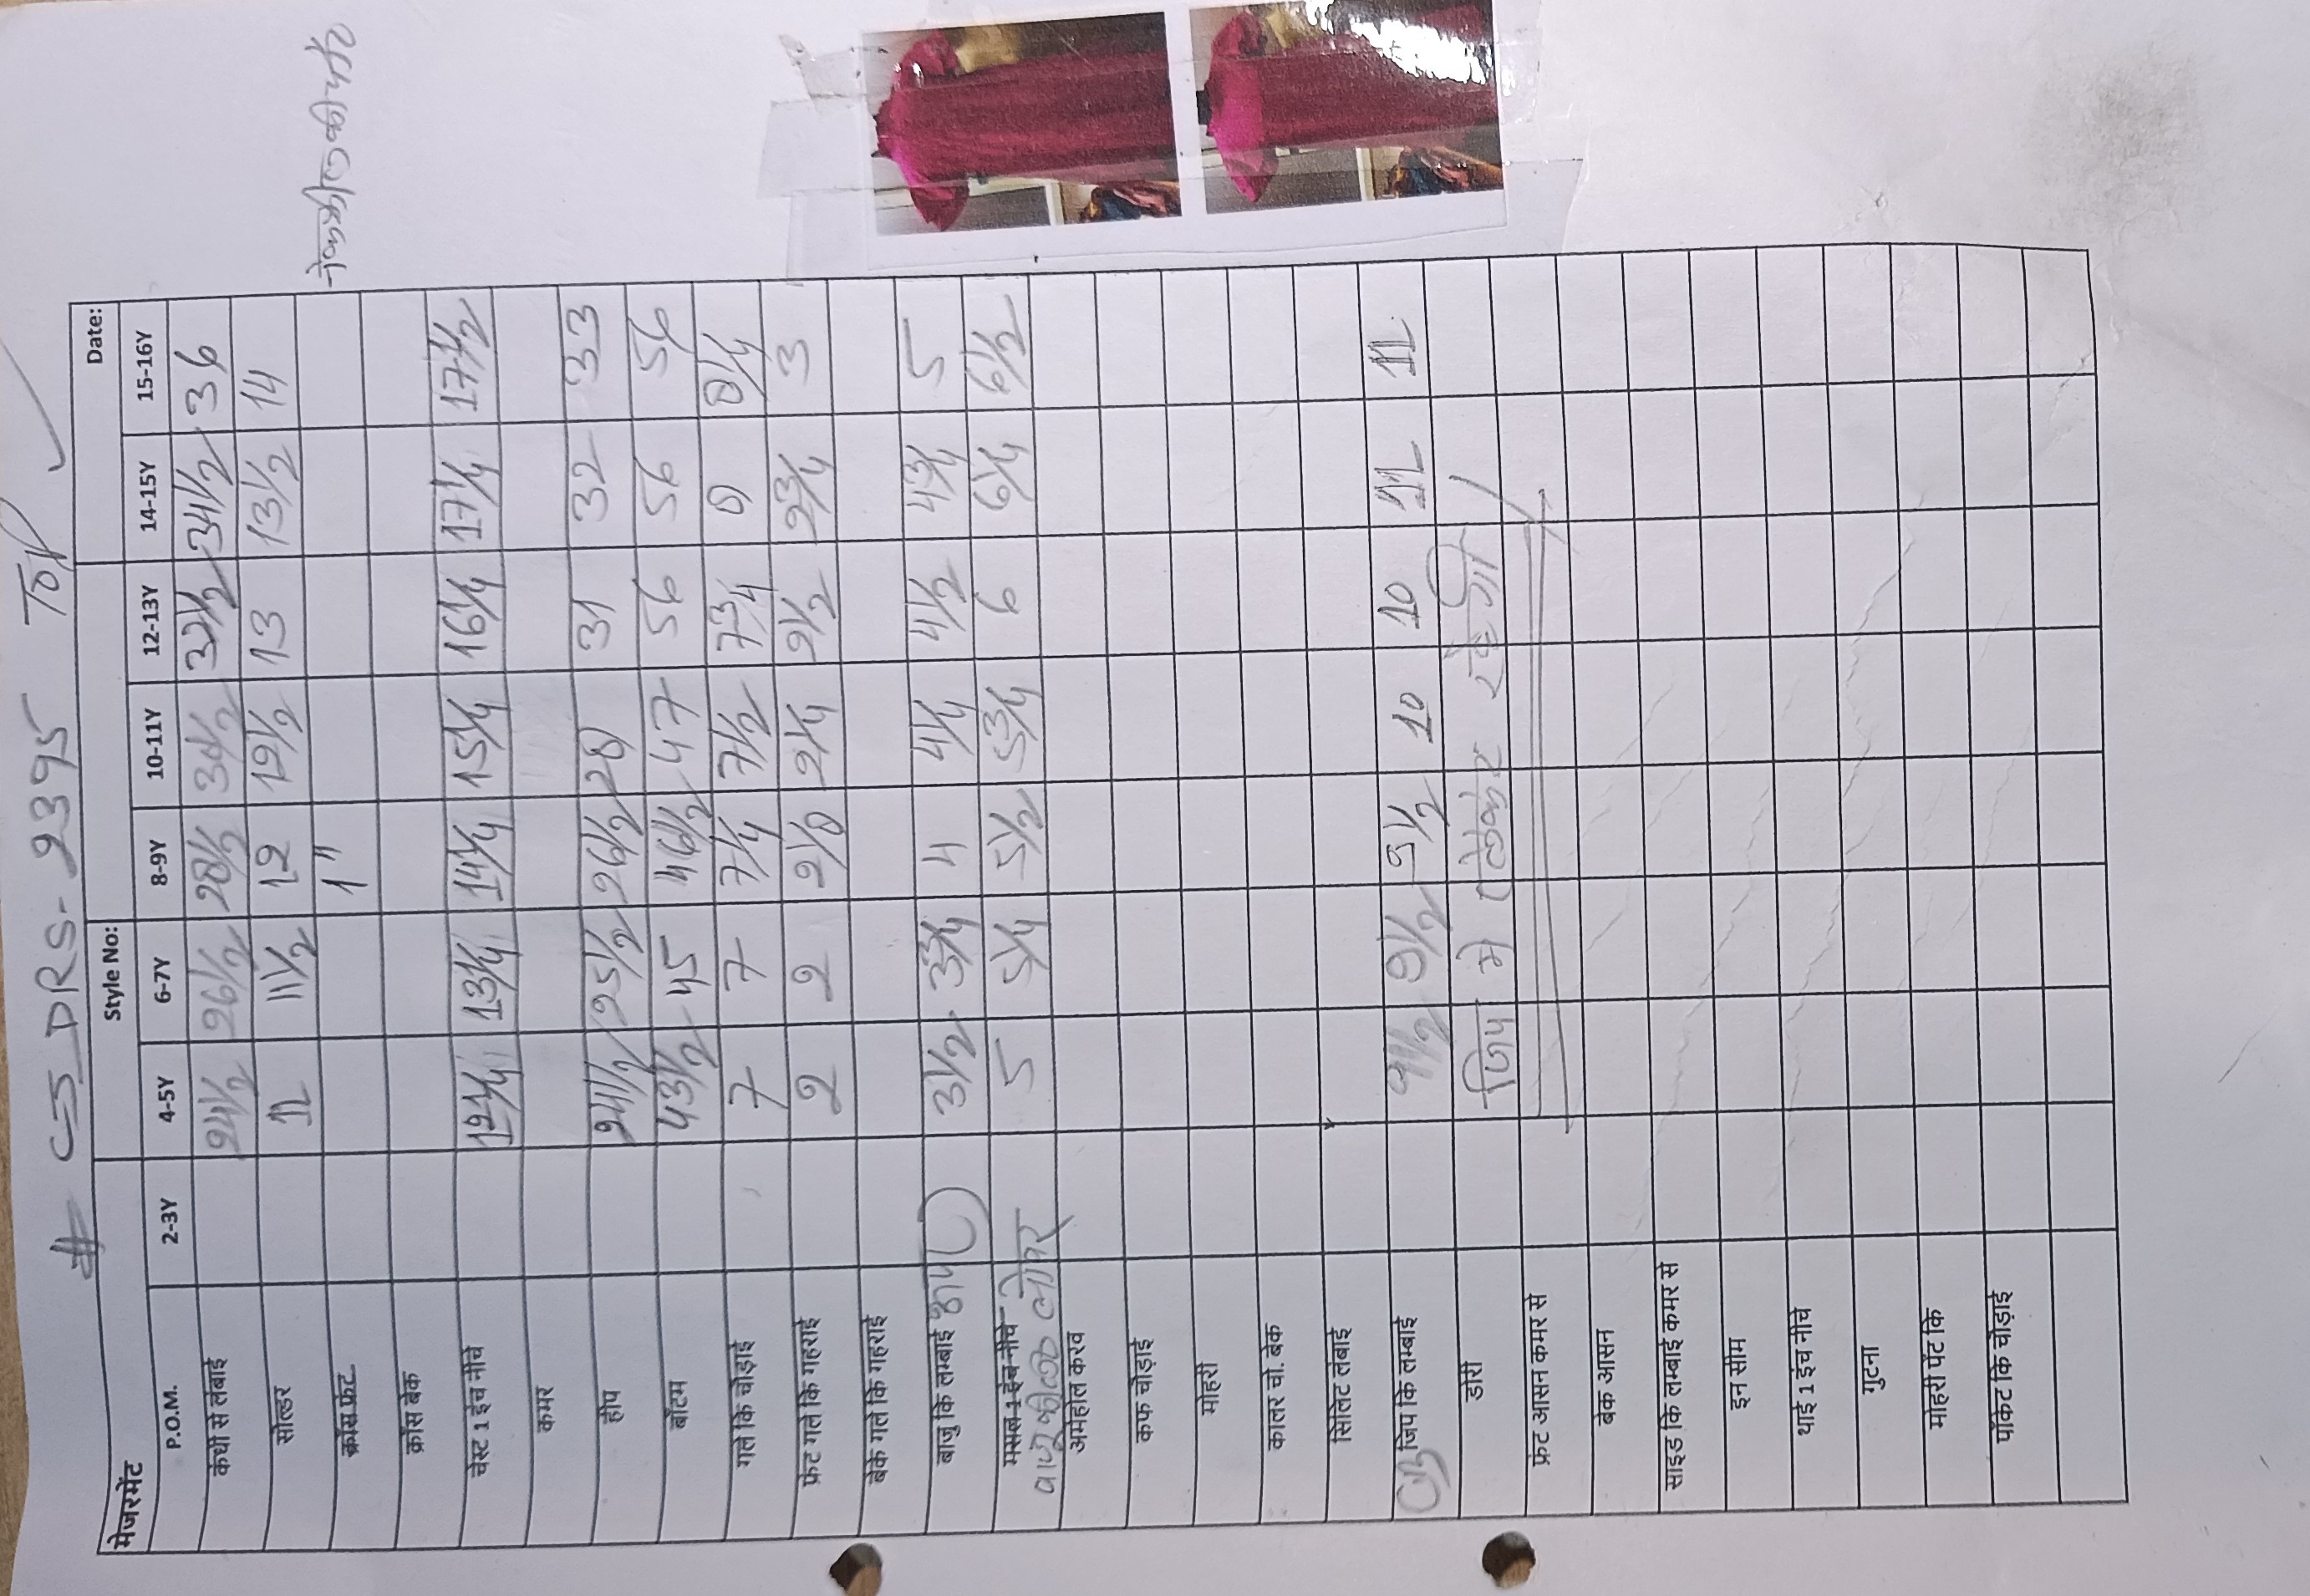 # CS_DRS-2395 TOP
मेजरमेंट Style No: Date:
P.O.M. 2-3Y 4-5Y 6-7Y 8-9Y 10-11Y 12-13Y 14-15Y 15-16Y
कंधी से लंबाई 24½ 26½ 28½ 34½ 36
सोल्डर 11 11½ 12 12½ 13 13½ 14
क्रॉस फ्रंट 1"
क्रॉस बेक
चेस्ट 1 इंच नीचे 12¼ 13¼ 14¼ 15¼ 16¼ 17¼ 17½
कमर
हीप 24½ 25½ 26½ 28 31 32 33
बॉटम 43½ 45 46½ 47 56 56 56
गले कि चोड़ाई 7 7 7¼ 7½ 7¾ 8 8¼
फ्रंट गले कि गहराई 2 2 2⅛ 2¼ 2½ 2¾ 3
बेक गले कि गहराई
बाजु कि लम्बाई 3½ 3¾ 4 4¼ 4½ 4¾ 5
मसल 1 इंच नीचे 5 5¼ 5½ 5¾ 6 6¼ 6½
अर्महोल करव
कफ चोड़ाई
मोहरी
कालर चो. बेक
सिलिट लंबाई
जिप कि लम्बाई 9½ 9½ 9½ 10 10 11 11
डोरी जिप मे रहेगी
फ्रंट आसन कमर से
बेक आसन
साइड कि लम्बाई कमर से
इन सीम
थाई 1 इंच नीचे
गुटना
मोहरी पेंट कि
पॉकेट कि चोड़ाई